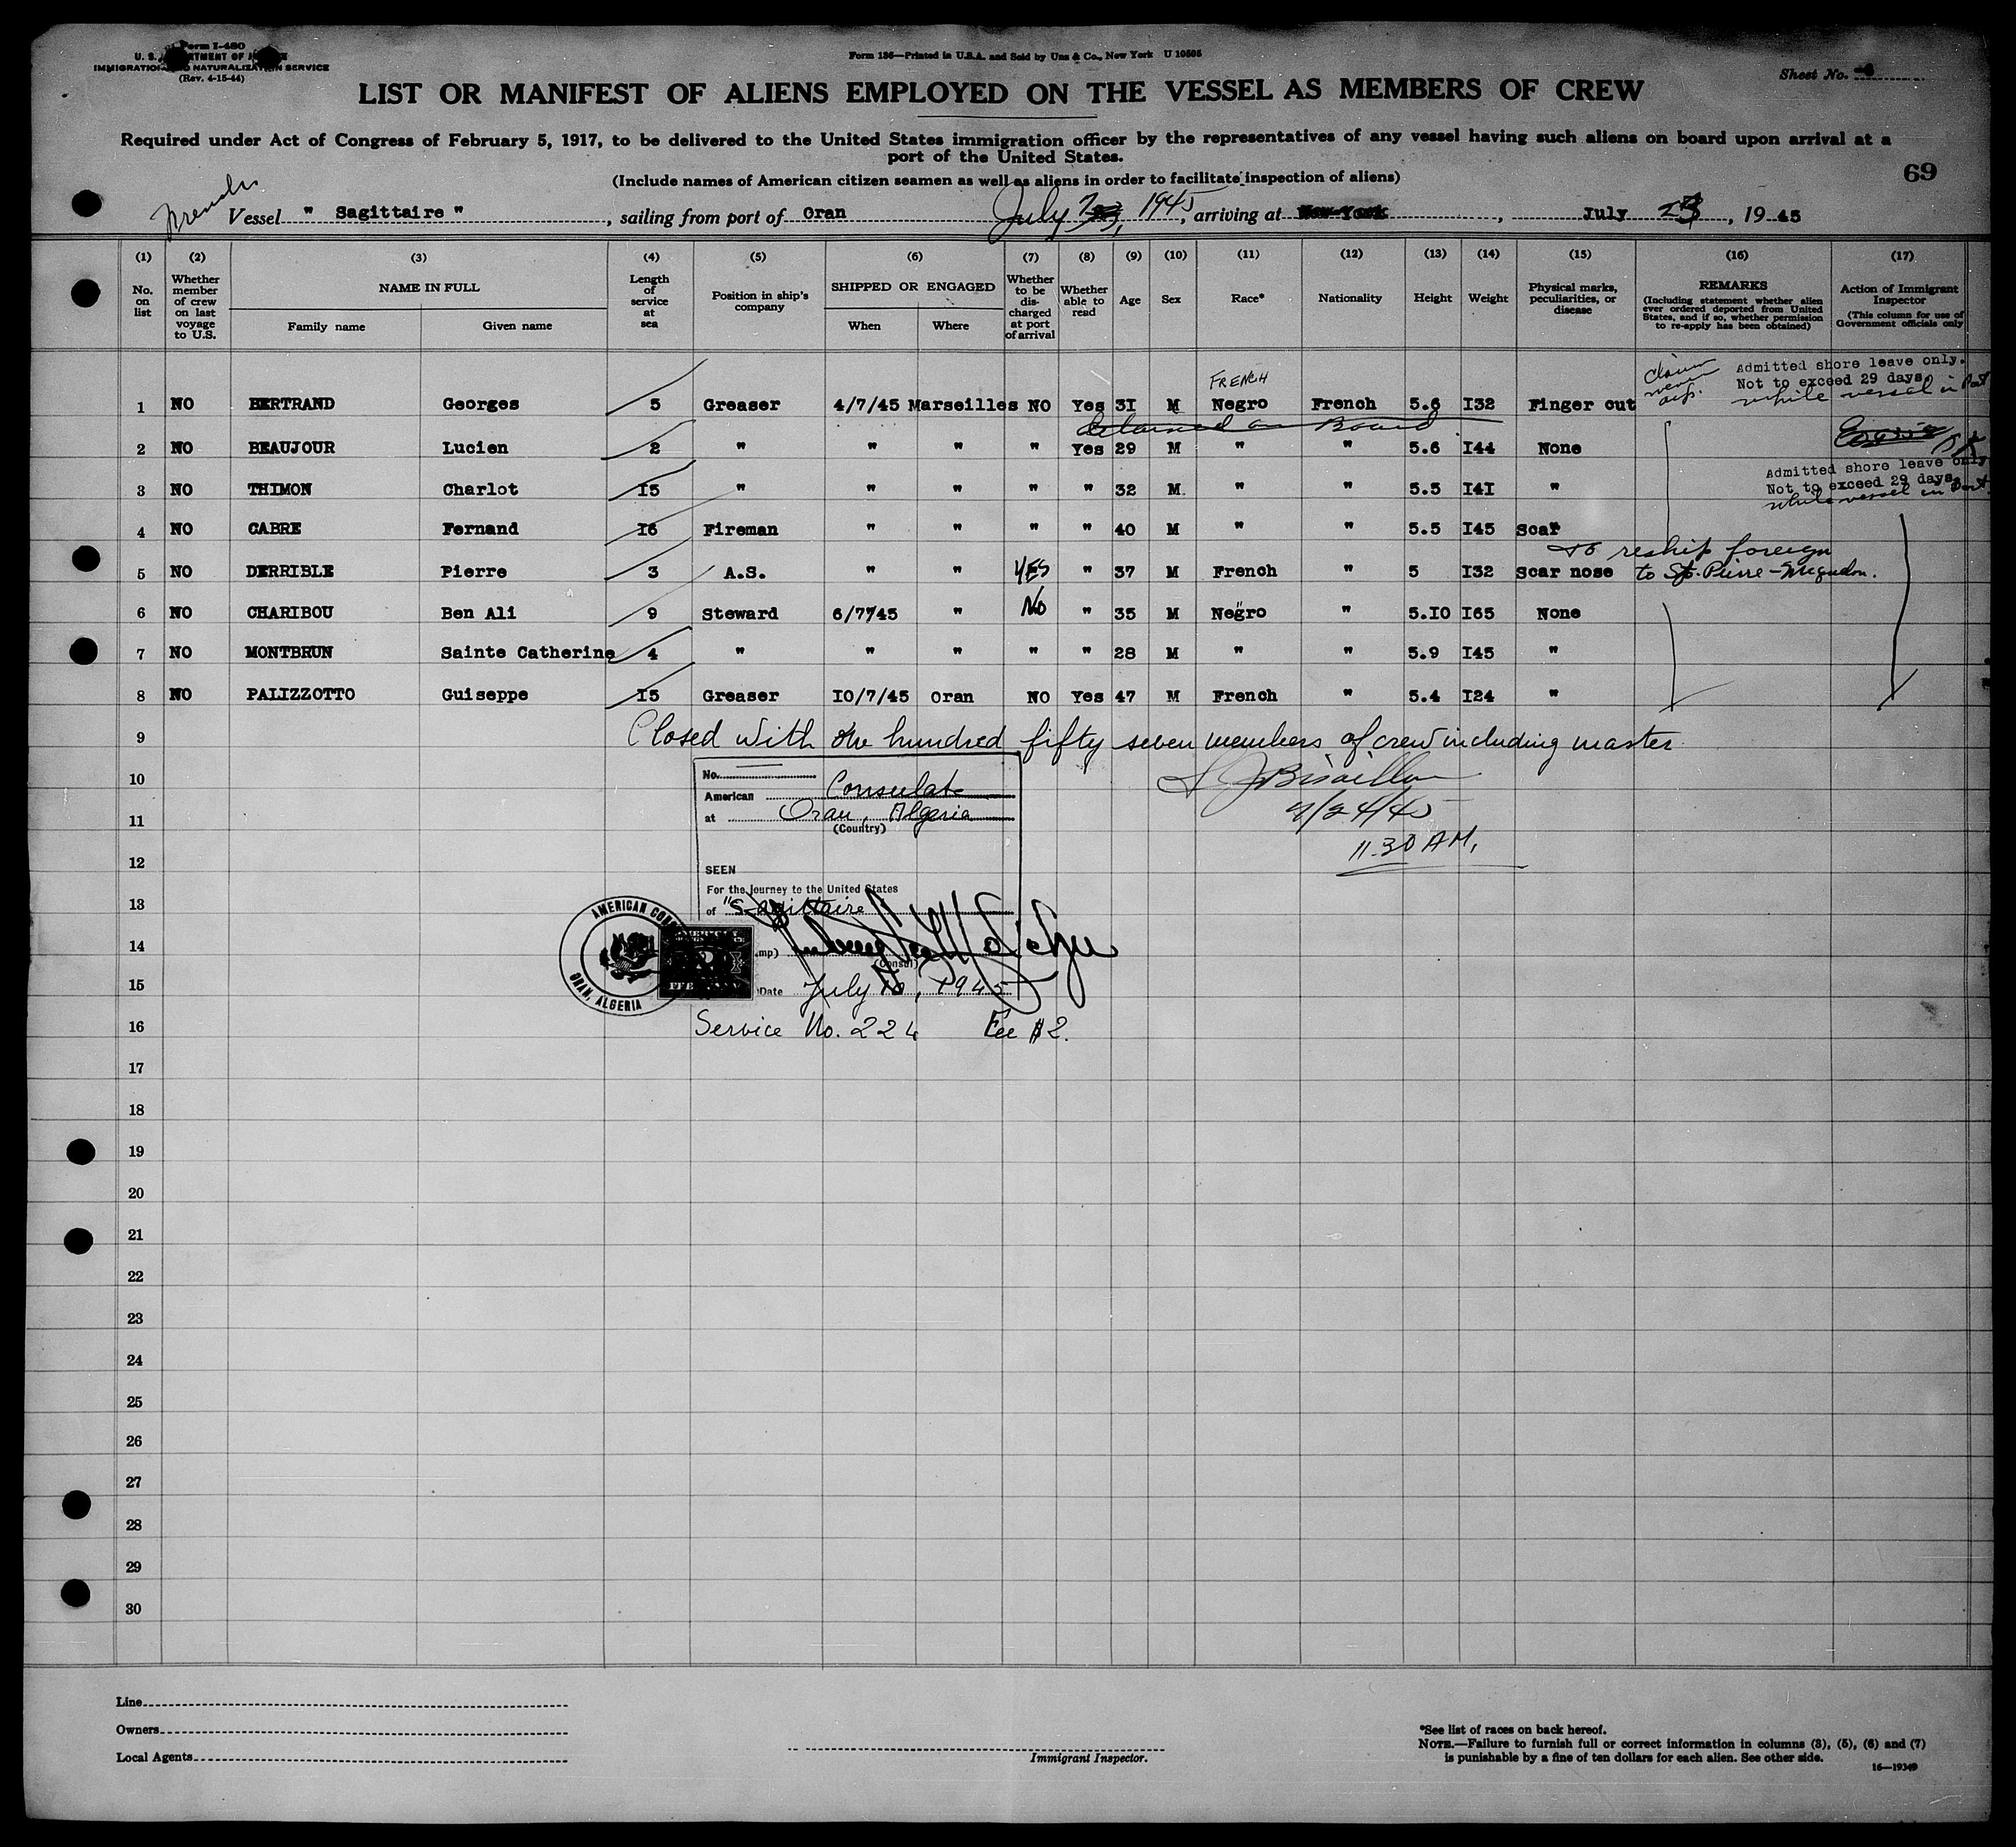 Form I-480
U. S. DEPARTMENT OF JUSTICE
IMMIGRATION AND NATURALIZATION SERVICE
(Rev. 4-15-44)
Form 136—Printed in U.S.A. and Sold by Unz & Co., New York U 10505
Sheet No.
LIST OR MANIFEST OF ALIENS EMPLOYED ON THE VESSEL AS MEMBERS OF CREW
Required under Act of Congress of February 5, 1917, to be delivered to the United States immigration officer by the representatives of any vessel having such aliens on board upon arrival at a
port of the United States.
(Include names of American citizen seamen as well as aliens in order to facilitate inspection of aliens)
69
French
Vessel " Sagittaire ", sailing from port of Oran July 1945, arriving at New-York, July 23, 19 45
(1) (2) (3) (4) (5) (6) (7) (8) (9) (10) (11) (12) (13) (14) (15) (16) (17)
No. on list
Whether member of crew on last voyage to U.S.
NAME IN FULL
Family name Given name
Length of service at sea
Position in ship's company
SHIPPED OR ENGAGED
When Where
Whether to be discharged at port of arrival
Whether able to read
Age
Sex
Race*
Nationality
Height
Weight
Physical marks, peculiarities, or disease
REMARKS
(Including statement whether alien ever ordered deported from United States, and if so, whether permission to re-apply has been obtained)
Action of Immigrant Inspector
(This column for use of Government officials only
Admitted shore leave only.
Not to exceed 29 days
while vessel in Port
claim never dep.
FRENCH
1 NO BERTRAND Georges 5 Greaser 4/7/45 Marseilles NO Yes 3I M Negro French 5.6 I32 Finger cut
detained on Board
2 NO BEAUJOUR Lucien 2 " " " " Yes 29 M " " 5.6 I44 None
Admitted shore leave only
Not to exceed 29 days
while vessel in Port
3 NO THIMON Charlot I5 " " " " " 32 M " " 5.5 I4I "
4 NO CABRE Fernand I6 Fireman " " " " 40 M " " 5.5 I45 Scar
To reship foreign
5 NO DERRIBLE Pierre 3 A.S. " " YES " 37 M French " 5 I32 Scar nose to St. Pierre-Miquelon.
6 NO CHARIBOU Ben Ali 9 Steward 6/7/45 " No " 35 M Negro " 5.I0 I65 None
7 NO MONTBRUN Sainte Catherine 4 " " " " " 28 M " " 5.9 I45 "
8 NO PALIZZOTTO Guiseppe I5 Greaser I0/7/45 Oran NO Yes 47 M French " 5.4 I24 "
9 Closed with one hundred fifty seven members of crew including master
10
11
12
13
14
15
16
17
18
19
20
21
22
23
24
25
26
27
28
29
30
11.30 AM,
No.
American Consulate
at Oran, Algeria
(Country)
SEEN
For the journey to the United States
of "Sagittaire"
(Consul)
Date July 10, 1945
AMERICAN CONS
ORAN, ALGERIA
Service No. 224 Fee $2.
Line
Owners
Local Agents
Immigrant Inspector.
*See list of races on back hereof.
NOTE.—Failure to furnish full or correct information in columns (3), (5), (6) and (7)
is punishable by a fine of ten dollars for each alien. See other side.
16—19349